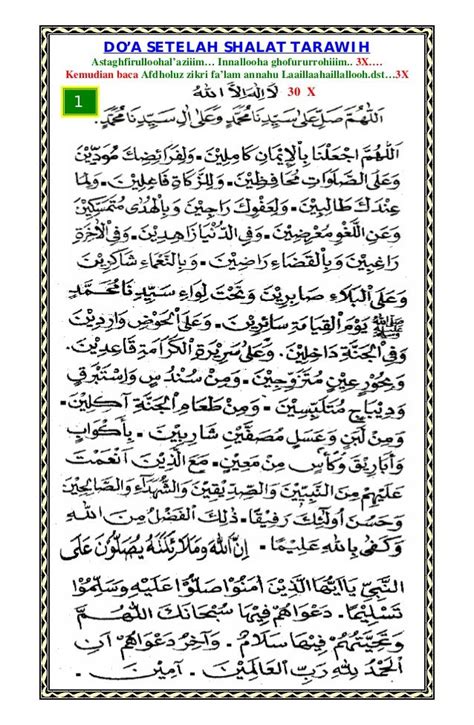 DO'A SETELAH SHALAT TARAWIH
Astaghfirulloohal'aziiim… Innallooha ghofururrohiiim.. 3X….
Kemudian baca Afdholuz zikri fa'lam annahu Laaillaahaillallooh.dst…3X
1
لَا إِلٰهَ إِلَّا اللهُ 30 X
اَللّٰهُمَّ صَلِّ عَلَى سَيِّدِنَا مُحَمَّدٍ وَعَلَى اٰلِ سَيِّدِنَا مُحَمَّدٍ.
اَللّٰهُمَّ اجْعَلْنَا بِالْاِيْمَانِ كَامِلِيْنَ. وَلِفَرَائِضِكَ مُؤَدِّيْنَ
وَعَلَى الصَّلَوَاتِ مُحَافِظِيْنَ. وَلِلزَّكَاةِ فَاعِلِيْنَ. وَلِمَا
عِنْدَكَ طَالِبِيْنَ. وَلِعَفْوِكَ رَاجِيْنَ وَبِالْهُدَى مُتَمَسِّكِيْنَ
وَعَنِ اللَّغْوِ مُعْرِضِيْنَ. وَفِي الدُّنْيَا زَاهِدِيْنَ. وَفِي الْاٰخِرَةِ
رَاغِبِيْنَ وَبِالْقَضَاءِ رَاضِيْنَ. وَبِالنَّعْمَاءِ شَاكِرِيْنَ
وَعَلَى الْبَلَاءِ صَابِرِيْنَ وَتَحْتَ لِوَاءِ سَيِّدِنَا مُحَمَّدٍ
ﷺ يَوْمَ الْقِيَامَةِ سَائِرِيْنَ. وَعَلَى الْحَوْضِ وَارِدِيْنَ
وَفِي الْجَنَّةِ دَاخِلِيْنَ. وَعَلَى سَرِيْرَةِ الْكَرَامَةِ قَاعِدِيْنَ.
وَبِحُوْرٍ عِيْنٍ مُتَزَوِّجِيْنَ. وَمِنْ سُنْدُسٍ وَاِسْتَبْرَقٍ
وَدِيْبَاجٍ مُتَلَبِّسِيْنَ. وَمِنْ طَعَامِ الْجَنَّةِ اٰكِلِيْنَ.
وَمِنْ لَبَنٍ وَعَسَلٍ مُصَفَّيْنِ شَارِبِيْنَ. بِاَكْوَابٍ
وَاَبَارِيْقَ وَكَأْسٍ مِنْ مَعِيْنٍ. مَعَ الَّذِيْنَ اَنْعَمْتَ
عَلَيْهِمْ مِنَ النَّبِيِّيْنَ وَالصِّدِّيْقِيْنَ وَالشُّهَدَاءِ وَالصَّالِحِيْنَ
وَحَسُنَ اُولٰئِكَ رَفِيْقًا. ذٰلِكَ الْفَضْلُ مِنَ اللهِ
وَكَفَى بِاللهِ عَلِيْمًا. اِنَّ اللهَ وَمَلَائِكَتَهُ يُصَلُّوْنَ عَلَى
النَّبِيِّ يَااَيُّهَا الَّذِيْنَ اٰمَنُوْا صَلُّوْا عَلَيْهِ وَسَلِّمُوْا
تَسْلِيْمًا. دَعْوَاهُمْ فِيْهَا سُبْحَانَكَ اللّٰهُمَّ
وَتَحِيَّتُهُمْ فِيْهَا سَلَامٌ. وَاٰخِرُ دَعْوَاهُمْ اَنِ
الْحَمْدُ لِلّٰهِ رَبِّ الْعَالَمِيْنَ. اٰمِيْنَ.